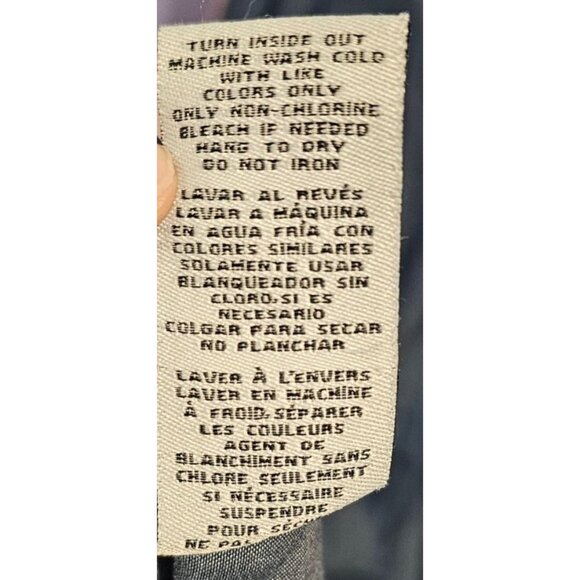 TURN INSIDE OUT
MACHINE WASH COLD
WITH LIKE
COLORS ONLY
ONLY NON-CHLORINE
BLEACH IF NEEDED
HANG TO DRY
DO NOT IRON
LAVAR AL REVÉS
LAVAR A MÁQUINA
EN AGUA FRÍA CON
COLORES SIMILARES
SOLAMENTE USAR
BLANQUEADOR SIN
CLORO,SI ES
NECESARIO
COLGAR PARA SECAR
NO PLANCHAR
LAVER À L'ENVERS
LAVER EN MACHINE
À FROID,SÉPARER
LES COULEURS
AGENT DE
BLANCHIMENT SANS
CHLORE SEULEMENT
SI NÉCESSAIRE
SUSPENDRE
POUR
NE